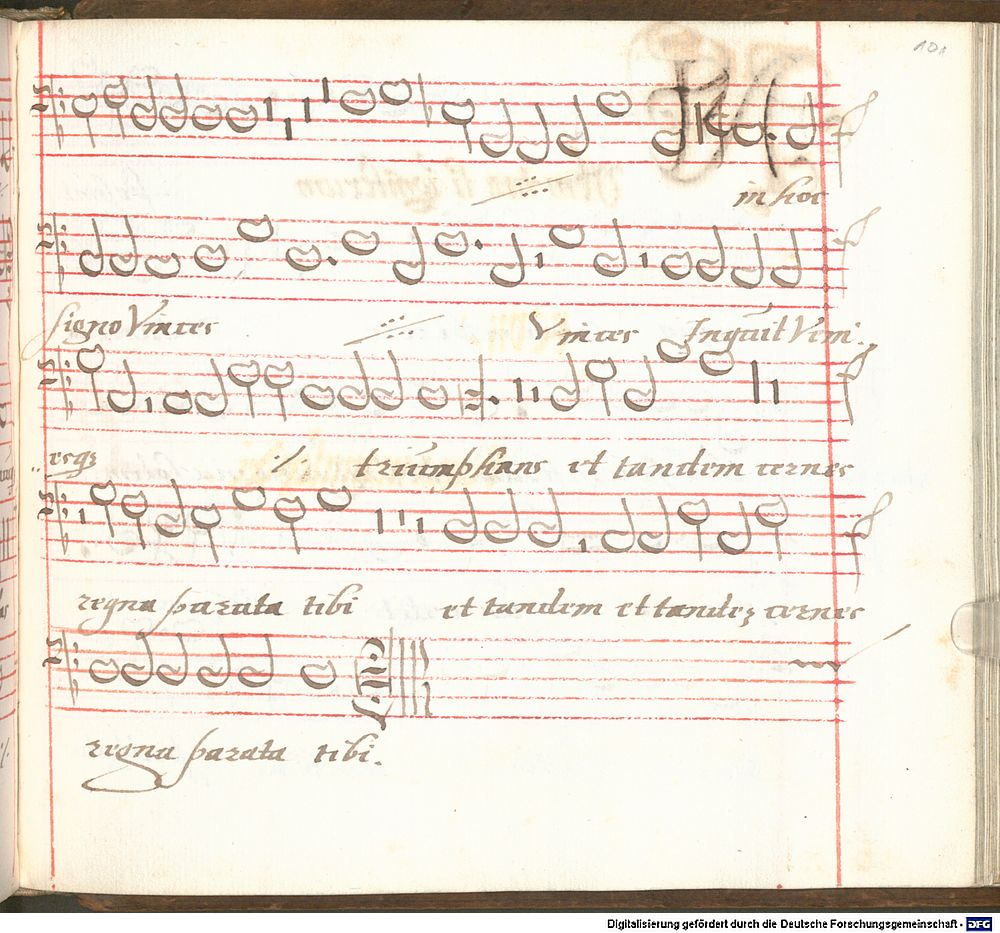 101
in hoc
signo Vinces Vinces Inquit Vin
triumphans et tandem cernes
regna parata tibi et tandem et tandez cernes
regna parata tibi.
Digitalisierung gefördert durch die Deutsche Forschungsgemeinschaft - DFG